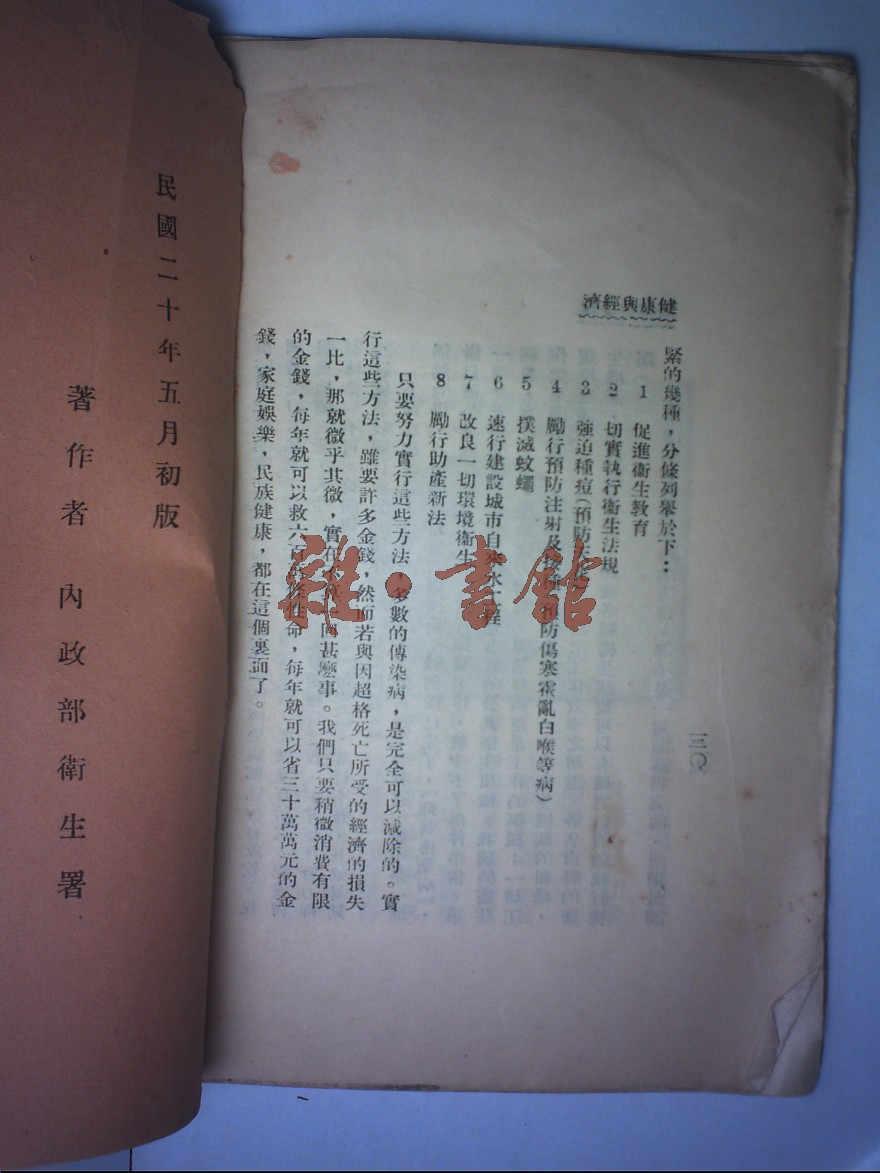 健康與經濟
三〇
緊的幾種，分條列舉於下：
1 促進衛生教育
2 切實執行衛生法規
3 強迫種痘（預防天花）
4 勵行預防注射及接種（預防傷寒霍亂白喉等病）
5 撲滅蚊蠅
6 速行建設城市自來水工程
7 改良一切環境衛生
8 勵行助產新法
只要努力實行這些方法，多數的傳染病，是完全可以減除的。實
行這些方法，雖要許多金錢，然而若與因超格死亡所受的經濟的損失
一比，那就微乎其微，實在 甚麼事。我們只要稍微消費有限
的金錢，每年就可以救六百 條性命，每年就可以省三十萬萬元的金
錢，家庭娛樂，民族健康，都在這個裏面了。
民國二十年五月初版
著作者 內政部衛生署
雜·書館